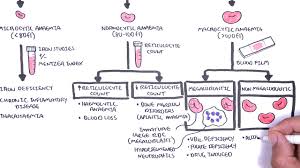 MICROCYTIC ANAEMIA
(<80fl)
NORMOCYTIC ANAEMIA
(80-100fl)
MACROCYTIC ANAEMIA
(>100fl)
IRON STUDIES
MENTZER INDEX
RETICULOCYTE
COUNT
BLOOD FILM
IRON DEFICIENCY
CHRONIC INFLAMMATORY
DISEASE
THALASSAEMIA
↑ RETICULOCYTE
COUNT
• HAEMOLYTIC
ANAEMIA
• BLOOD LOSS
↓ RETICULOCYTE
COUNT
• BONE MARROW
DISORDERS
IMMATURE
LARGE RBC
(MEGALOBLASTS)
HYPERSEGMENTED
NEUTROPHILS
MEGALOBLASTIC
• B12 DEFICIENCY
• FOLATE DEFICIENCY
• DRUG INDUCED
NON MEGALOBLASTIC
• ALCOHOL
• LIVER